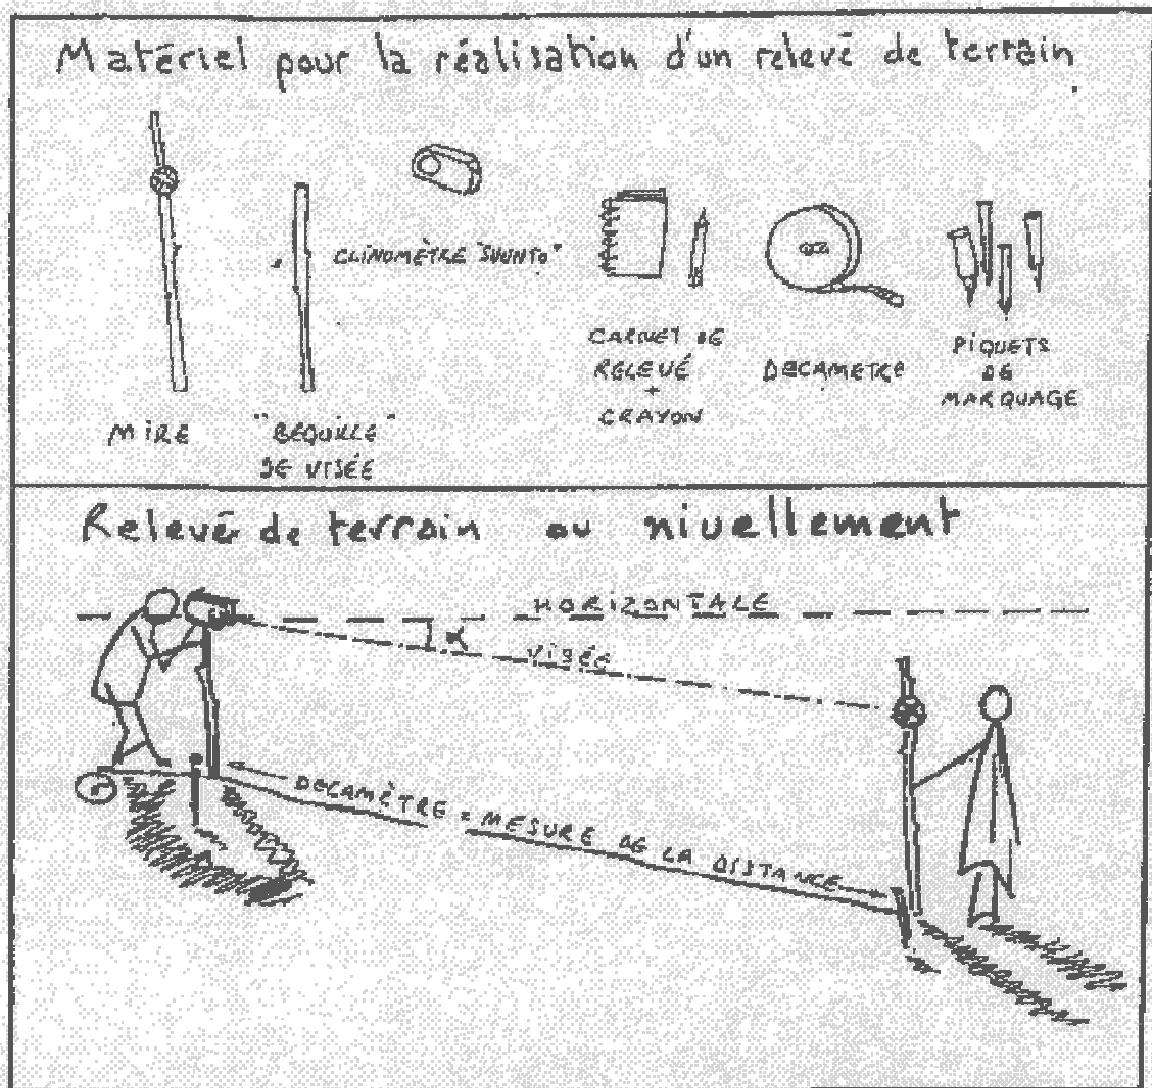 Matériel pour la réalisation d'un relevé de terrain
CLINOMÈTRE "SUUNTO"
CARNET DE
RELEVÉ
+
CRAYON
DECAMETRE
PIQUETS
DE
MARQUAGE
MIRE
"BEQUILLE"
DE VISÉE
Relevé de terrain ou nivellement
HORIZONTALE
VISÉE
DECAMÈTRE = MESURE DE LA DISTANCE